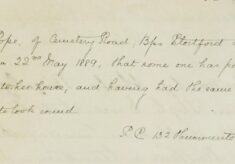 Pope, of Cemetery Road, Bps Stortford
22nd May 1889, that some one has
house, and having had the same
to look round
P.C. 132